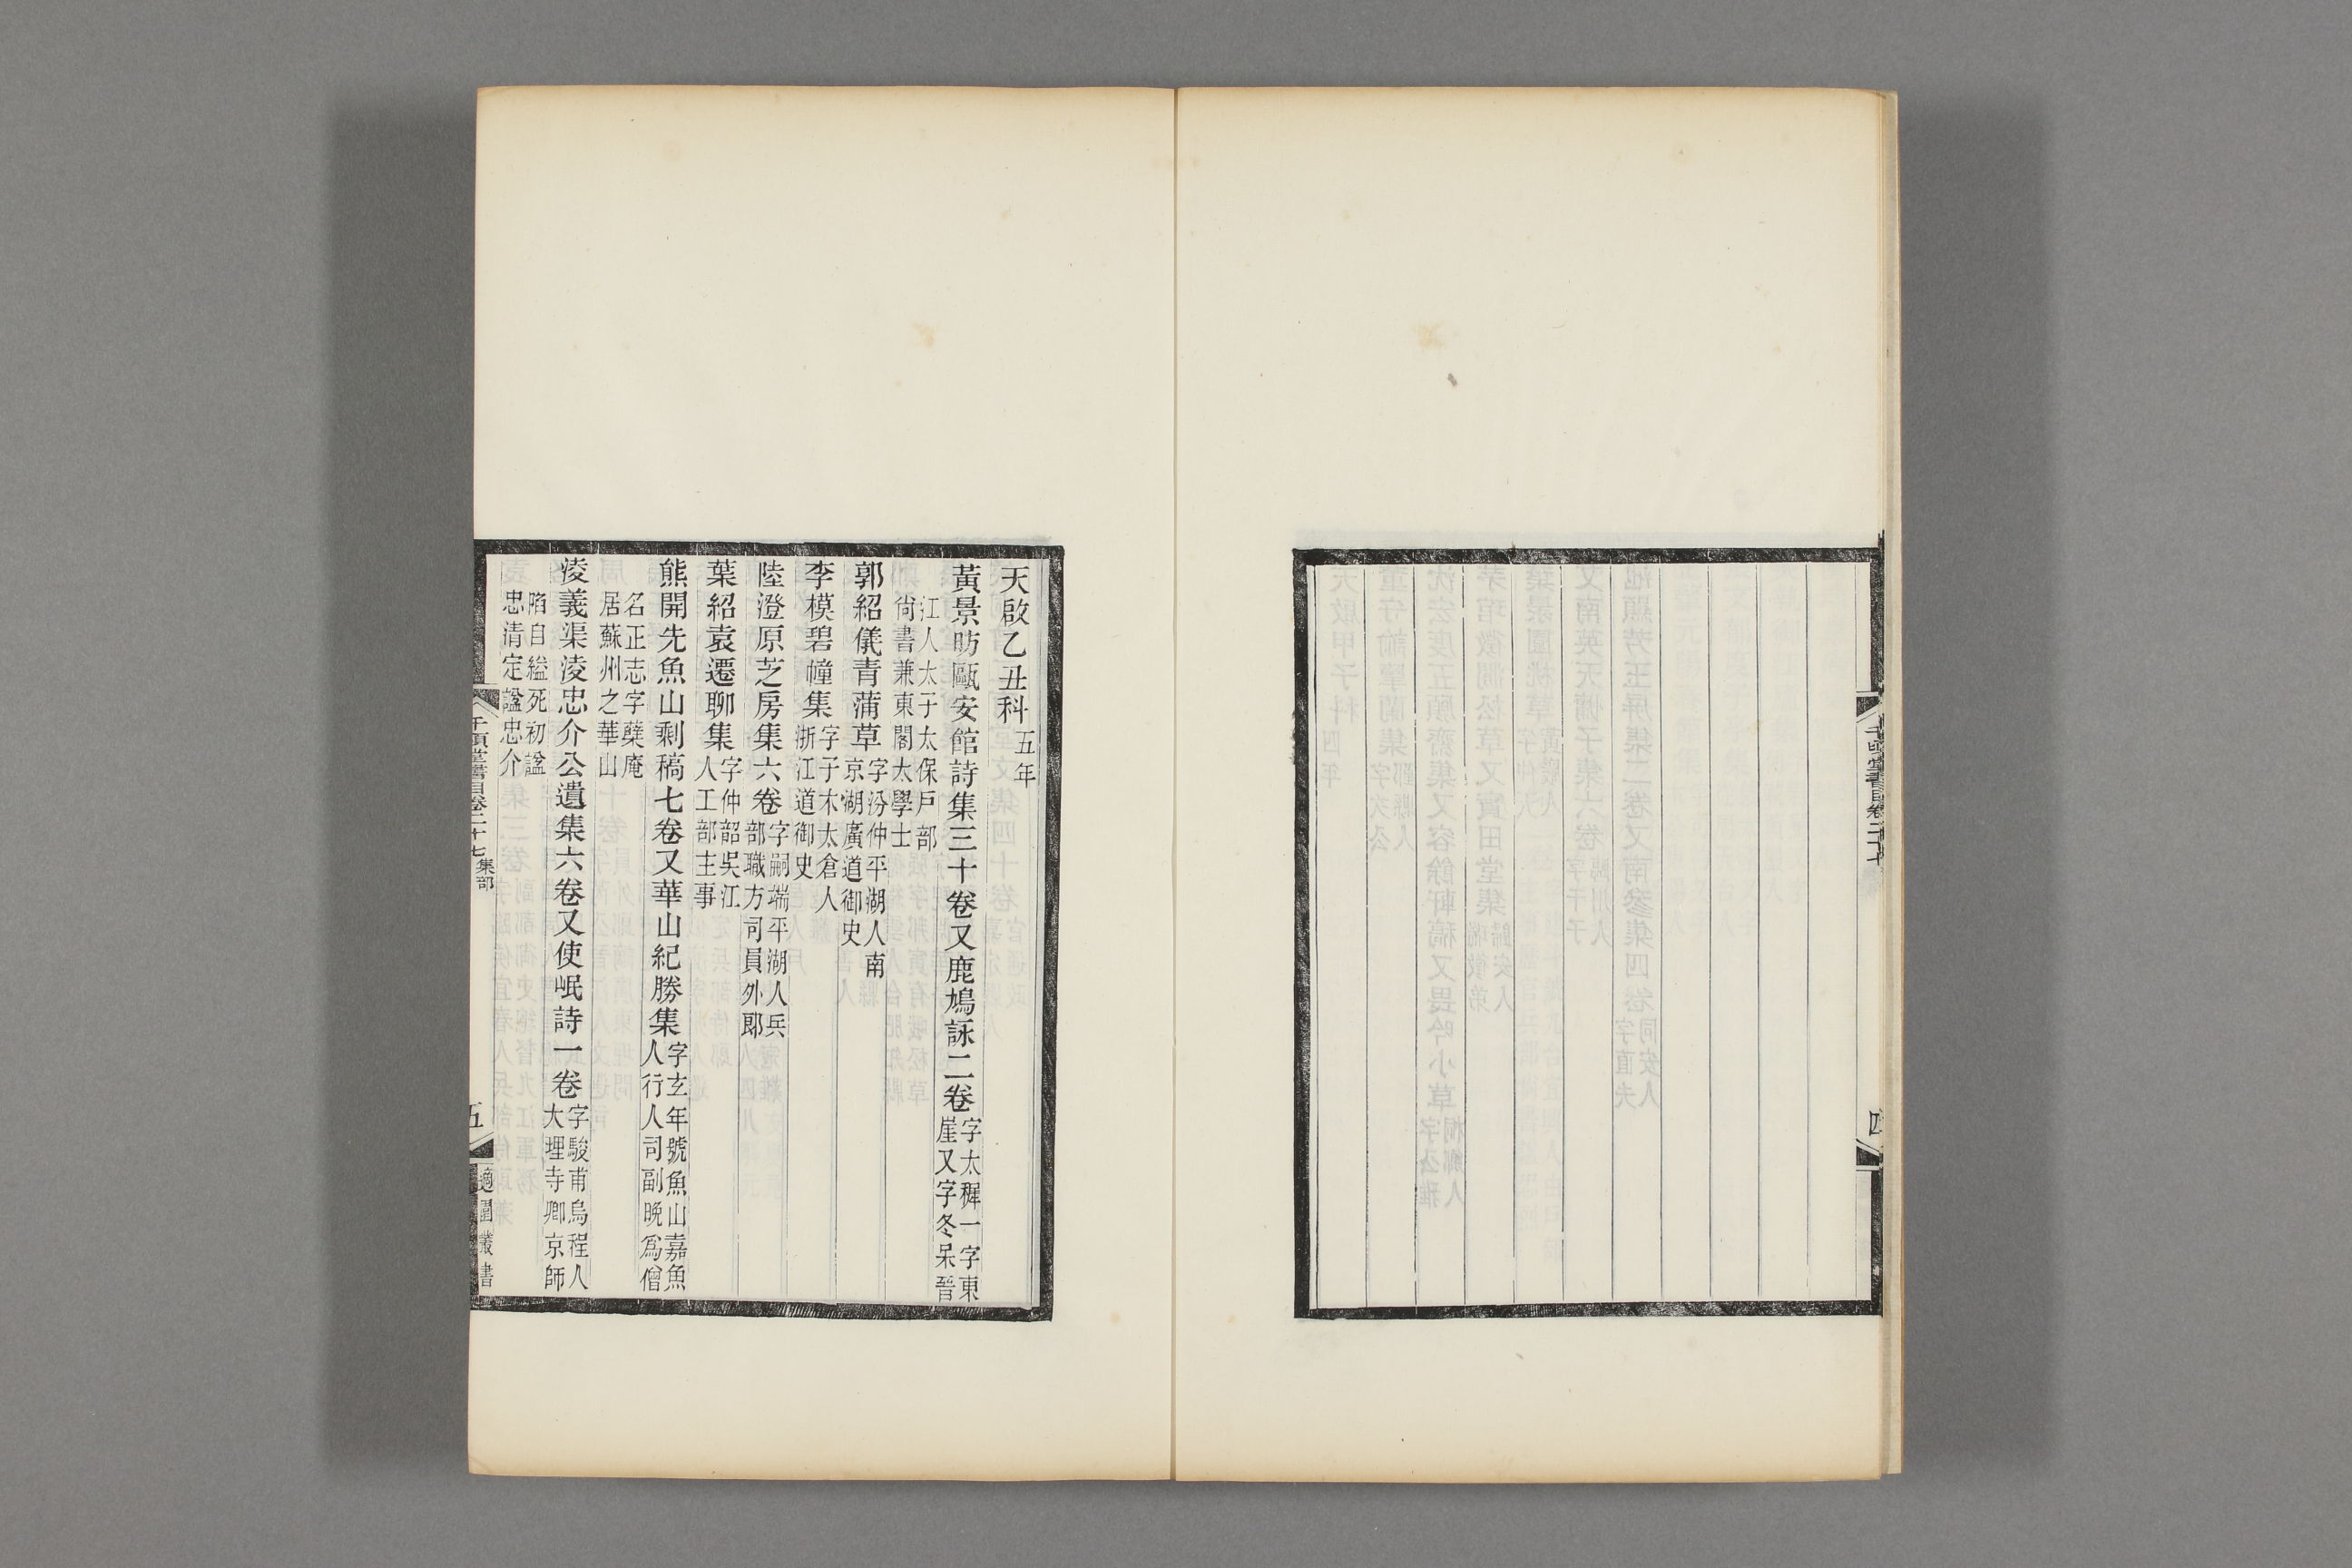 天啟乙丑科五年
黃景昉甌安館詩集三十卷又鹿鳩詠二卷字太穉一字東
崖又字冬呆晉
江人太子太保戶部
尚書兼東閣大學士
郭紹儀青蒲草字汾仲平湖人南
京湖廣道御史
李模碧幢集字子木太倉人
浙江道御史
陸澄原芝房集六卷字嗣端平湖人兵
部職方司員外郎
葉紹袁遷聊集字仲韶吳江
人工部主事
熊開先魚山剩稿七卷又華山紀勝集字玄年號魚山嘉魚
人行人司副晚爲僧
名正志字蘖庵
居蘇州之華山
淩義渠淩忠介公遺集六卷又使岷詩一卷字駿甫烏程人
大理寺卿京師
陷自縊死初諡
忠清定諡忠介
千頃堂書目卷二十七集部
五
適園叢書